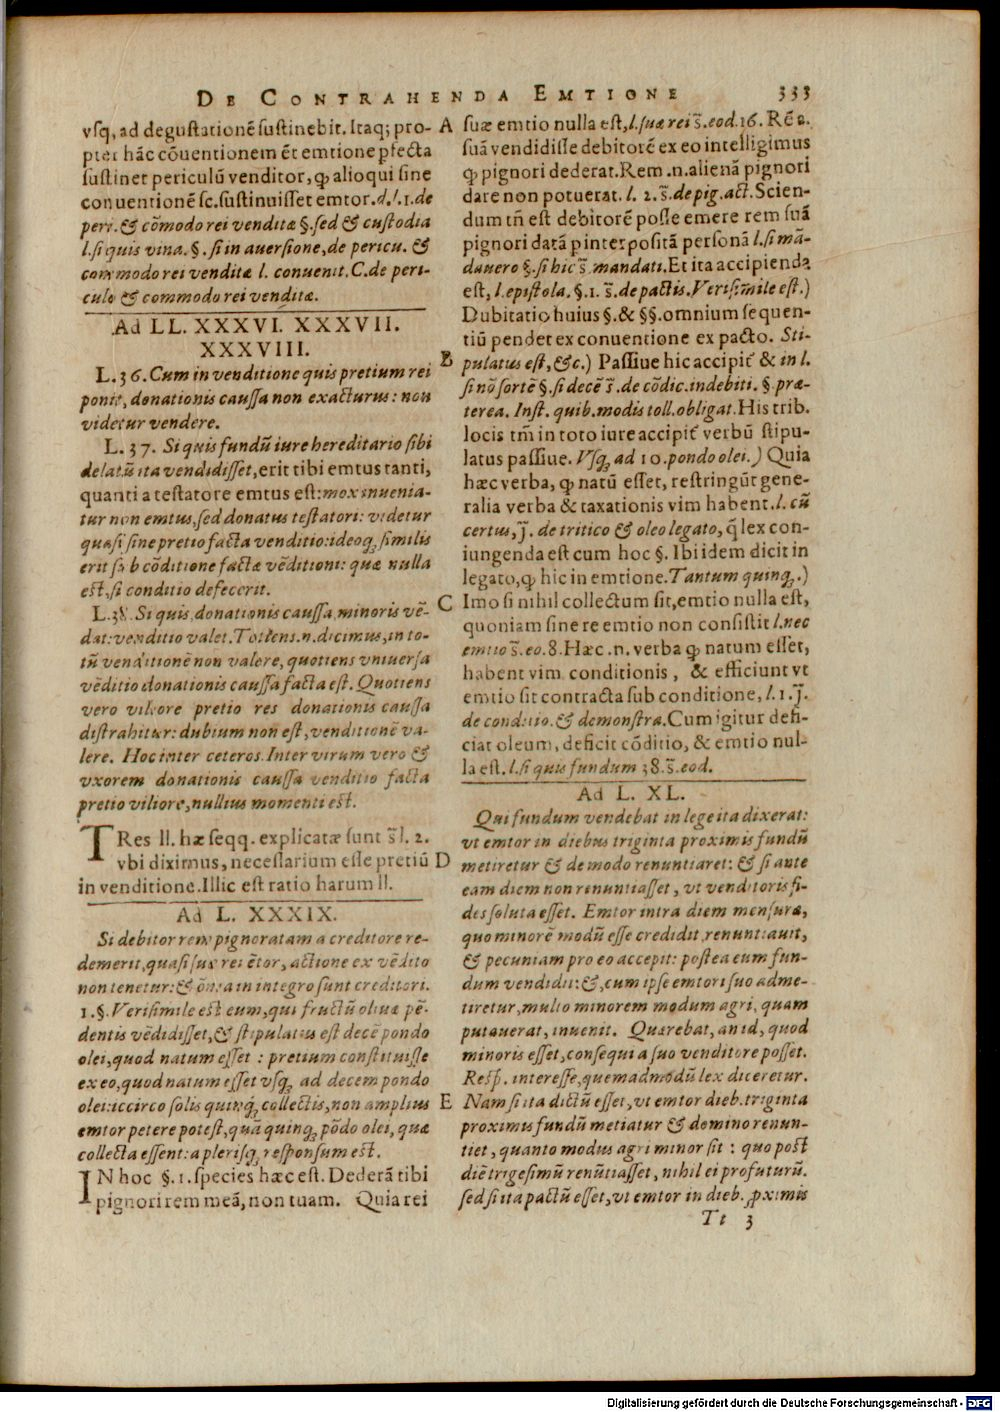 DE CONTRAHENDA EMTIONE 333
vsq, ad degustationē sustinebit. Itaq; pro-
pter hāc cōuentionem ēt emtione pfecta
sustinet periculū venditor, ꝙ alioqui sine
conuentionē sc. sustinuisset emtor. d. l. 1. de
peri. & cōmodo rei venditæ §. sed & custodia
l. si quis vina. §. si in auersione, de pericu. &
commodo rei venditæ l. conuenit. C. de peri-
culo & commodo rei venditæ.
Ad LL. XXXVI. XXXVII.
XXXVIII.
L. 36. Cum in venditione quis pretium rei
ponit, donationis caussa non exacturus: non
videtur vendere.
L. 37. Si quis fundū iure hereditario sibi
delatū ita vendidisset, erit tibi emtus tanti,
quanti a testatore emtus est: mox inuenia-
tur non emtus, sed donatus testatori: videtur
quasi sine pretio facta venditio: ideoq; similis
erit sub cōditione factæ vēditioni: quæ nulla
est, si conditio defecerit.
L. 38. Si quis donationis caussa minoris vē-
dat: venditio valet. Totiens. n. dicimus, in to-
tū venditionē non valere, quotiens vniuersa
vēditio donationis caussa facta est. Quotiens
vero viliore pretio res donationis caussa
distrahitur: dubium non est, venditionē va-
lere. Hoc inter ceteros. Inter virum vero &
vxorem donationis caussa venditio facta
pretio viliore, nullius momenti est.
TRes ll. hæ seqq. explicatæ sunt s̄ l. 2.
vbi diximus, necessarium esse pretiū
in venditione. Illic est ratio harum ll.
Ad L. XXXIX.
Si debitor rem pignoratam a creditore re-
demerit, quasi suæ rei ētor, actione ex vēdito
non tenetur: & ōnia in integro sunt creditori.
1. §. Verisimile est eum, qui fructū oliuæ pē-
dentis vēdidisset, & stipulatus est decē pondo
olei, quod natum esset: pretium constituisse
ex eo, quod natum esset vsq; ad decem pondo
olei: iccirco solis quinq; collectis, non amplius
emtor petere potest, quā quinq; pōdo olei, quæ
collecta essent: a plerisq; responsum est.
IN hoc §. 1. species hæc est. Dederā tibi
pignori rem meā, non tuam. Quia rei
A suæ emtio nulla est, l. suæ rei s̄. eod. 16. Rē
suā vendidisse debitorē ex eo intelligimus
ꝙ pignori dederat. Rem .n. alienā pignori
dare non potuerat. l. 2. s̄. de pig. act. Scien-
dum tn̄ est debitorē posse emere rem suā
pignori datā p interpositā personā l. si mā-
dauero §. si hic s̄. mandati. Et ita accipienda
est, l. epistola. §. 1. s̄. de pactis. Verisimile est.)
Dubitatio huius §. & §§. omnium sequen-
tiū pendet ex conuentione ex pacto. Sti-
B pulatus est, &c.) Passiue hic accipit & in l.
si nō sortē §. si decē s̄. de cōdic. indebiti. §. præ-
terea. Inst. quib. modis toll. obligat. His trib.
locis tm̄ in toto iure accipit verbū stipu-
latus passiue. Vsq; ad 10. pondo olei.) Quia
hæc verba, ꝙ natū esset, restringūt gene-
ralia verba & taxationis vim habent. l. cū
certus, j̄. de tritico & oleo legato, q̄ lex con-
iungenda est cum hoc §. Ibi idem dicit in
legato, ꝙ hic in emtione. Tantum quinq;.)
C Imo si nihil collectum sit, emtio nulla est,
quoniam sine re emtio non consistit l. nec
emtio s̄. eo. 8. Hæc .n. verba ꝙ natum esset,
habent vim conditionis, & efficiunt vt
emtio sit contracta sub conditione, l. 1. j̄.
de conditio. & demonstra. Cum igitur defi-
ciat oleum, deficit cōditio, & emtio nul-
la est. l. si quis fundum 38. s̄. eod.
Ad L. XL.
Qui fundum vendebat in lege ita dixerat:
vt emtor in diebus triginta proximis fundū
D metiretur & de modo renuntiaret: & si ante
eam diem non renuntiasset, vt venditoris fi-
des soluta esset. Emtor intra diem mensuræ,
quo minorē modū esse credidit, renuntiauit,
& pecuniam pro eo accepit: postea eum fun-
dum vendidit: &, cum ipse emtori suo adme-
tiretur, multo minorem modum agri, quam
putauerat, inuenit. Quærebat, an id, quod
minoris esset, consequi a suo venditore posset.
Resp. interesse, quemadmodū lex diceretur.
E Nam si ita dictū esset, vt emtor dieb. triginta
proximis fundū metiatur & domino renun-
tiet, quanto modus agri minor sit: quo post
diē trigesimū renūtiasset, nihil ei profuturū.
sed si ita pactū esset, vt emtor in dieb. ꝓximis
Tt 3
Digitalisierung gefördert durch die Deutsche Forschungsgemeinschaft - DFG